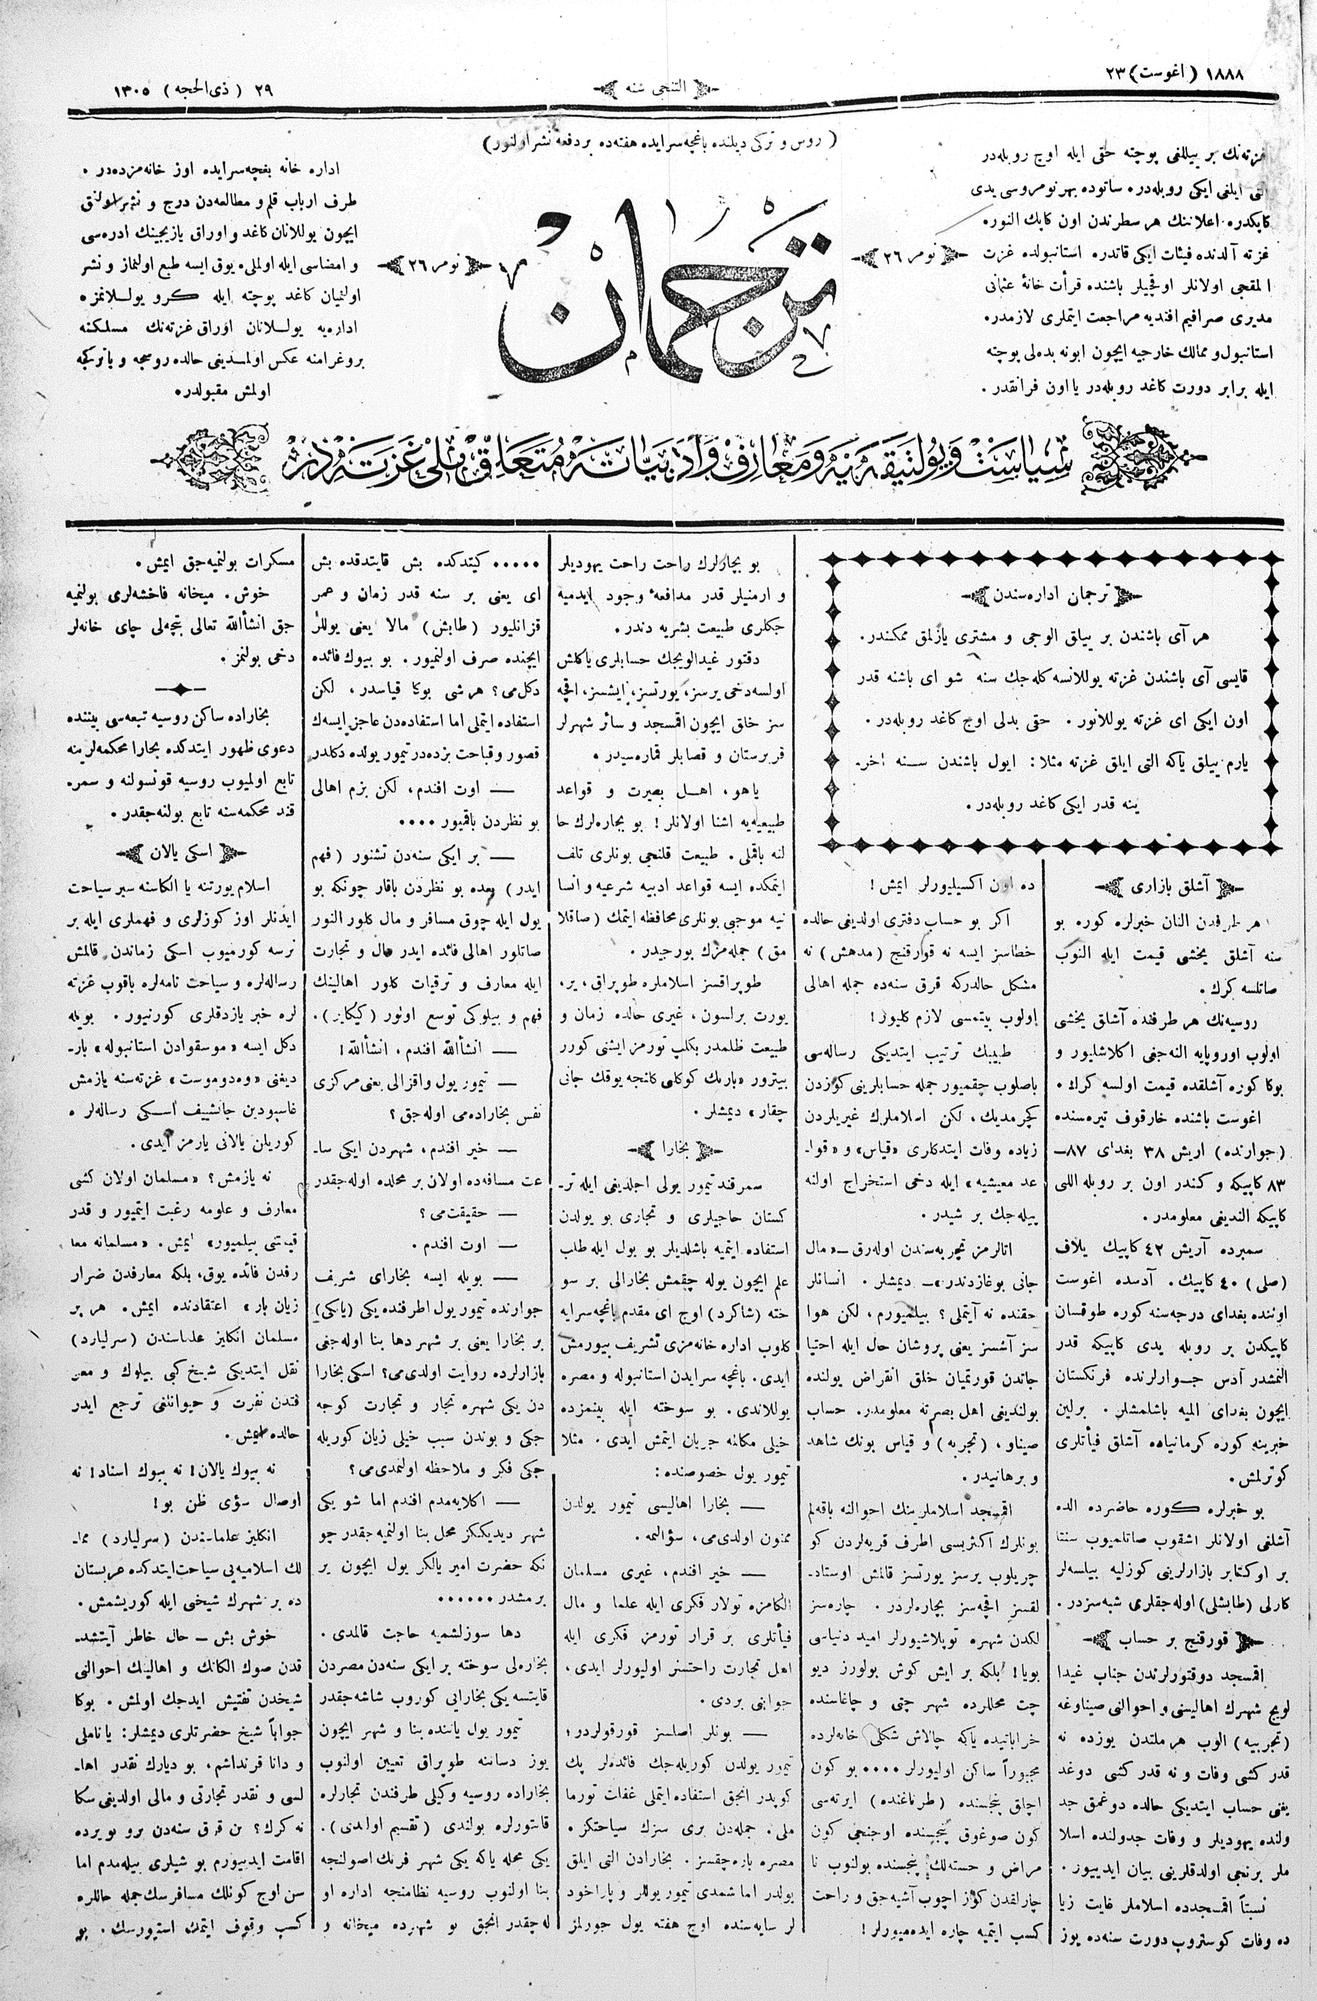 ١٨٨٨ (اغوست) ٢٣
التنجی سنه
٢٩ (ذی الحجه) ١٣٠٥
(روس و ترکی دیلنده باغچه سرایده هفته ده بر دفعه نشر اولنور)
غزته نك بر ییللغی پوچته حقی ایله اوچ روبله در
التی ایلغی ایکی روبله در، ساتوده بهر نومروسی یدی
کاپکدر، اعلاننك هر سطرندن اون کاپك النوره
غزته آلدنده فیئات ایکی قاتدره استانبولده غزت
المقجی اولانلر اوقچیلر باشنده قرأت خانۀ عثمانی
مدیری صرافیم افندیه مراجعت ایتملری لازمدر.
استانبول و ممالك خارجیه ایچون ابونه بدلی پوچته
ایله برابر دورت کاغد روبله در یا اون فرانقدر.
نومر ٢٦
ترجمان
نومر ٢٦
اداره خانه بغچه سرایده اوز خانه مزده در.
طرف ارباب قلم و مطالعه دن درج و نشر اولنق
ایچون یوللانان کاغد و اوراق یازیجینك ادرسی
و امضاسی ایله اولملی، یوق ایسه طبع اولنماز و نشر
اولنمیان کاغد پوچته ایله کرو یوللانمزه
اداره یه یوللانان اوراق غزته نك مسلکنه
پروغرامنه عکس اولمدیغی حالده روسچه و یا ترکچه
اولمش مقبولدره
ترجمان اداره سندن
هر آی باشندن بر ییلق الوجی و مشتری یازلمق ممکندر.
قایسی آی باشندن غزته یوللانسه کله جك سنه شو ای باشنه قدر
اون ایکی ای غزته یوللانور. حقی بدلی اوچ کاغد روبله در.
یارم ییلق یاکه التی ایلق غزته مثلا: ایول باشندن سنه اخر-
ینه قدر ایکی کاغد روبله در.
آشلق بازاری
هر طرفدن النان خبرلره کوره بو
سنه آشلق یخشی قیمت ایله النوب
صاتلسه کرك.
روسیه نك هر طرفنده آشلق یخشی
اولوب اوروپایه النه جغی اکلاشلیور و
بوکا کوره آشلقده قیمت اولسه کرك.
اغوست باشنده خارقوف تیره سنده
(جوارنده) اریش ٣٨ بغدای ٨٧-
٨٣ کاپیکه و کندر اون بر روبله اللی
کاپیکه الندیغی معلومدر.
سمبرده آریش ٤٢ کاپیك یلاف
(صلی) ٤٠ کاپیك. آدسده اغوست
اوننده بغدای درجه سنه کوره طوقسان
کاپیکدن بر روبله یدی کاپیکه قدر
النمشدر آدس جوارلرنده فرنکستان
ایچون بغدای المیه باشلمشلر. برلین
خبرینه کوره کرمانیاده آشلق فیأتلری
کوترلمش.
بو خبرلره کوره حاضرده الده
آشلغی اولانلر اشقوب صاتلمیوب سنتا
بر اوکتابر بازارلرینی کوزلیه بیلسه لر
کارلی (طابشلی) اوله جقلری شبه سزدر.
قورقنج بر حساب
اقمسجد دوقتورلرندن جناب غیدا
لویج شهرك اهالیسنی و احوالنی صیناوغه
(تجربیه) الوب هر ملتدن یوزده نه
قدر کشی وفات و نه قدر کشی دوغد
یغنی حساب ایتدیکی حالده دوغمق جد
ولنده یهودیلر و وفات جدولنده اسلا
ملر برنجی اولدقلرینی بیان ایدییور.
نسبتاً اقمسجدده اسلاملر غایت زیا
ده وفات کوستروب دورت سنه ده یوز
ده اون اکسیلیورلر ایمش!
اکر بو حساب دفتری اولدیغی حالده
خطاسز ایسه نه قورقنج (مدهش) نه
مشکل حالدرکه قرق سنه ده جمله اهالی
اولوب بیتمسی لازم کلیور!
طبیبك ترتیب ایتدیکی رساله سی
باصلوب چقمیور جمله حسابلرینی کوزدن
کچرمدیك، لکن اسلاملرك غیریلردن
زیاده وفات ایتدکلری «قیاس» و «قوا-
عد معیشیه» ایله دخی استخراج اولنه
بیله جك بر شیدر.
اتالرمز تجربه سندن اوله رق - «مال
جانی بوغازدندر» - دیمشلر. انسانلر
حقنده نه آیتملی؟ بیلمیورم، لکن هوا
سز آشسز یعنی پروشان حال ایله احتیا
جاتدن قورتمیان خلق انقراض یولنده
بولندیغی اهل بصرته معلومدر. حساب
صیناو، (تجربه) و قیاس بونك شاهد
و برهانیدر.
اقمسجد اسلاملرینك احوالنه باقه لم
بونلرك اکثریسی اطرف قریه لردن کو
چریلوب یرسز یورتسز قالمش اوستاد-
لقسز اقچه سز بچاره لردر. چاره سز
لکدن شهره توپلاشیورلر امید دنیاسی
بویا! بلکه بر ایش کوش بولورز دیو
چت محللرده شهر چتی و چاغاسنده
خراباتیده یاکه چالاش شکلی خانه لرده
مجبوراً ساکن اولیورلر .... بو کون
اچلق پنجسنده (طرناغنده) ایرته سی
کون صوغوق پنجسنده اوجنجی کون
مراض و حسته لك پنجسنده بولنوب نا
چارلقدن کوز اچوب آشیه جق و راحت
کسب ایتمیه چاره ایده میورلر!
بو بیچاره لرك راحت راحت یهودیلر
و ارمنیلر قدر مدافعۀ وجود ایدمیه
جکلری طبیعت بشریه دندر.
دقتور غیدالویجك حسابلری یاکلش
اولسه دخی یرسز، یورتسز، ایشسز، اقچه
سز خلق ایچون اقمسجد و سائر شهرلر
قبرستان و قصابلر قناره سیدر.
یاهو، اهل بصیرت و قواعد
طبیعیه یه اشنا اولانلر! بو بچاره لرك حا
لنه باقملی. طبیعت قلنجی بونلری تلف
ایتمکده ایسه قواعد ادبیه شرعیه و انسا
نیه موجبی بونلری محافظه ایتمك (صاقلا
مق) جمله مزك بورجیدر.
طوپراقسز اسلاملره طوپراق، یر،
یورت برلسون، غیری حالده زمان و
طبیعت ظلمدر بکلپ تورمز ایشنی کورر
بیترور «بارنك کوکلی کانجه یوقك جانی
چقار» دیمشلر.
بخارا
سمرقند تیمور یولی اجلدیغی ایله تر-
کستان حاجیلری و تجاری بو یولدن
استفاده ایتمیه باشلدیلر بو یول ایله طلب
علم ایچون یوله چقمش بخارالی بر سو
خته (شاکرد) اوچ ای مقدم باغچه سرایه
کلوب اداره خانه مزی تشریف بیورمش
ایدی. باغچه سرایدن استانبوله و مصره
یوللاندی. بو سوخته ایله بینمزده
خیلی مکالمه جریان ایتمش ایدی. مثلا
تیمور یول خصوصنده:
— بخارا اهالیسی تیمور یولدن
ممنون اولدی می، سؤالیمه.
— خیر افندم، غیری مسلمان
الکامزه تولار فکری ایله علما و مال
فیأتلری بر قرار تورمز فکری ایله
اهل تجارت راحتسز اولیورلر ایدی،
جوابنی بردی.
— بونلر اصلسز قورقولردر؛
تیمور یولدن کوریله جك فائده لر پك
کوبدر انجق استفاده ایتملی غفات تورما
ملی. جمله دن بری سزك سیاحتکز.
مصره باره چقسز. بخارادن التی ایلق
یولدر اما شمدی تیمور یوللر و پاراخود
لر سایه سنده اوچ هفته یول جورلمز
..... کیتدکده بش قایتدقده بش
ای یعنی بر سنه قدر زمان و عمر
قزانلیور (طابش) مالا یعنی یوللر
ایچنده صرف اولنمیور. بو بیوك فائده
دکل می؟ هر شی بوکا قیاسدر، لکن
استفاده ایتملی اما استفاده دن عاجز ایسه ك
قصور و قباحت بزده در تیمور یولده دکلدر
— اوت افندم، لکن بزم اهالی
بو نظردن باقمیور ....
— بر ایکی سنه دن تشنور (فهم
ایدر) بعده بو نظردن باقار چونکه بو
یول ایله چوق مسافر و مال کلور النور
صاتلور اهالی فائده ایدر مال و تجارت
ایله معارف و ترقیات کلور اهالینك
فهم و بیلوکی توسع اونور (کیکایر).
— انشأالله افندم، انشأالله!
— تیمور یول واقزالی یعنی مرکزی
نفس بخاراده می اوله جق؟
— خیر افندم، شهردن ایکی سا-
عت مسافه ده اولان بر محلده اوله جقدر
— حقیقت می؟
— اوت افندم.
— بویله ایسه بخارای شریف
جوارنده تیمور یول اطرفنده یکی (یاکی)
بر بخارا یعنی بر شهر دها بنا اوله جغی
بازارلرده روایت اولدی می؟ اسکی بخارا
دن یکی شهره تجار و تجارت کوچه
جکی و بوندن سبب خیلی زیان کوریله
جکی فکر و ملاحظه اولنمدی می؟
— اکلایه مدم افندم اما شو یکی
شهر دیدیکیکز محل بنا اولنمیه جقدر چو
نکه حضرت امیر یالکز یول ایچون یر
برمشدر ......
دها سوزلشمیه حاجت قالمدی.
بخاره لی سوخته بر ایکی سنه دن مصردن
قایتسه یکی بخارایی کوروب شاشه جقدر
تیمور یول یاننده بنا و شهر ایچون
یوز دساتنه طوپراق تعیین اولنوب
بخاراده روسیه وکیلی طرفندن تجارلره
قانتورلره بولندی (تقسیم اولدی).
یکی محله یاکه یکی شهر فرنك اصولنجه
بنا اولنوب روسیه نظامنجه اداره او
له جقدر انجق بو شهرده میخانه و
مسکرات بولنمیه جق ایمش.
خوش. میخانه فاحشه لری بولنمیه
جق انشأالله تعالی بتجه لی چای خانه لر
دخی بولنمز.
بخاراده ساکن روسیه تبعه سی بیننده
دعوی ظهور ایتدکده بخارا محکمه لرینه
تابع اولمیوب روسیه قونسولنه و سمر-
قند محکمه سنه تابع بولنه جقدر.
اسکی یالان
اسلام یورتنه یا الکاسنه سیر سیاحت
ایدنلر اوز کوزلری و فهملری ایله بر
نرسه کورمیوب اسکی زماندن قالمش
رساله لره و سیاحت نامه لره باقوب غزته
لره خبر یازدقلری کورنیور. بویله
دکل ایسه «موسقوادن استانبوله» بار-
دیغنی «وه دوموست» غزته سنه یازمش
غاسپودین جانشییف اسکی رساله لره
کوریلن یالانی یارمز ایدی.
نه یازمش؟ «مسلمان اولان کشی
معارف و علومه رغبت ایتمیور و قدر
قیمتنی بیلمیور» ایمش. «مسلمانه معا
رفدن فائده یوق، بلکه معارفدن ضرار
زیان بار» اعتقادنده ایمش. هر بر
مسلمان انکلیز علماسندن (سرلیارد)
نقل ایتدیکی شیخ کبی بیلوك و معر
فتدن نفرت و حیوانلغی ترجع ایدر
حالده ایمش.
نه بیوك یالان! نه بیوك اسناد! نه
اوصال سؤی ظن بو!
انکلیز علماسندن (سرلیارد) مما-
لك اسلامیه یی سیاحت ایتدکده عربستان
ده بر شهرك شیخی ایله کوریشمش.
خوش بش - حال خاطر آیتشد-
قدن صوك الکانك و اهالینك احوالنی
شیخدن تفتیش ایدجك اولمش. بوکا
جواباً شیخ حضرتلری دیمشلر: یا ناملی
و دانا قرنداشم، بو دیارك نقدر اها-
لسی و نقدر تجارتی و مالی اولدیغی سکا
نه کرك؟ بن قرق سنه دن برو بو یرده
اقامت ایدییورم بو شیلری بیله مدم اما
سن اوچ کونلك مسافرسك جمله حاللره
کسب وقوف ایتمك استیورسك. بو